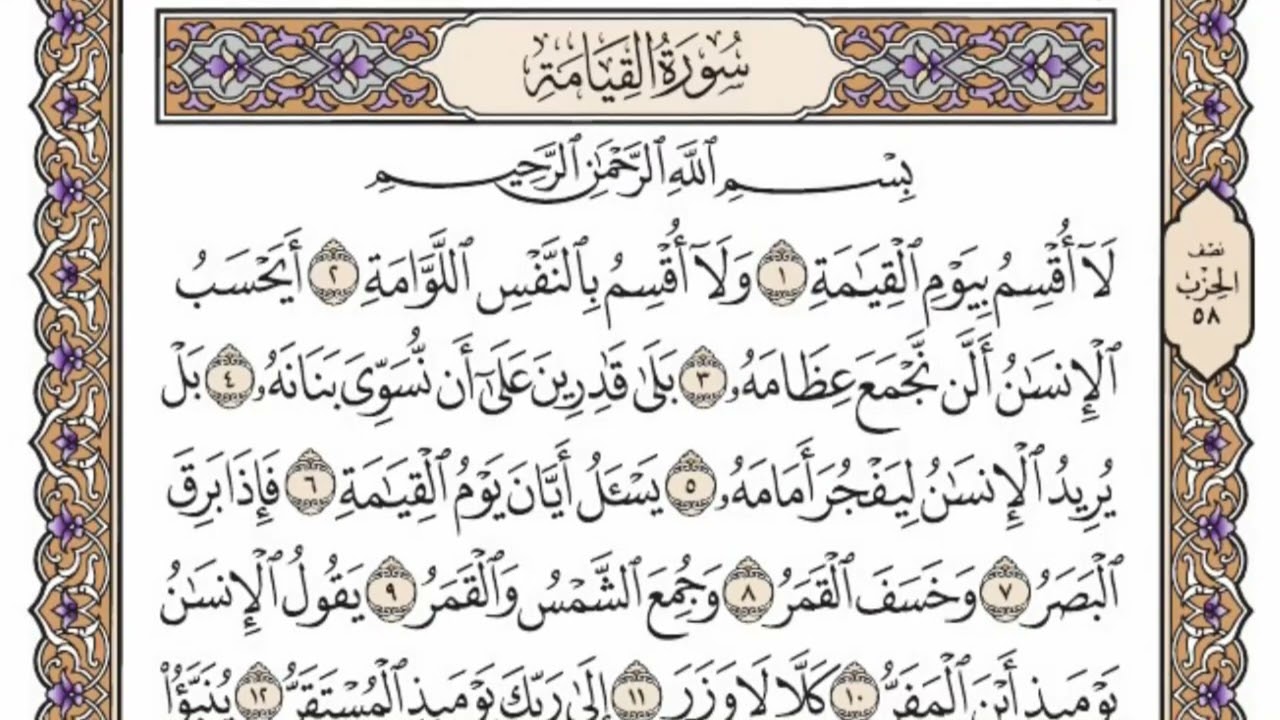 سُورَةُ القِيَامَةِ
بِسْمِ ٱللَّهِ ٱلرَّحْمَٰنِ ٱلرَّحِيمِ
لَآ أُقْسِمُ بِيَوْمِ ٱلْقِيَٰمَةِ ١ وَلَآ أُقْسِمُ بِٱلنَّفْسِ ٱللَّوَّامَةِ ٢ أَيَحْسَبُ
ٱلْإِنسَٰنُ أَلَّن نَّجْمَعَ عِظَامَهُۥ ٣ بَلَىٰ قَٰدِرِينَ عَلَىٰٓ أَن نُّسَوِّىَ بَنَانَهُۥ ٤ بَلْ
يُرِيدُ ٱلْإِنسَٰنُ لِيَفْجُرَ أَمَامَهُۥ ٥ يَسْـَٔلُ أَيَّانَ يَوْمُ ٱلْقِيَٰمَةِ ٦ فَإِذَا بَرِقَ
ٱلْبَصَرُ ٧ وَخَسَفَ ٱلْقَمَرُ ٨ وَجُمِعَ ٱلشَّمْسُ وَٱلْقَمَرُ ٩ يَقُولُ ٱلْإِنسَٰنُ
يَوْمَئِذٍ أَيْنَ ٱلْمَفَرُّ ١٠ كَلَّا لَا وَزَرَ ١١ إِلَىٰ رَبِّكَ يَوْمَئِذٍ ٱلْمُسْتَقَرُّ ١٢ يُنَبَّؤُا۟
نصف
الحزب
٥٨